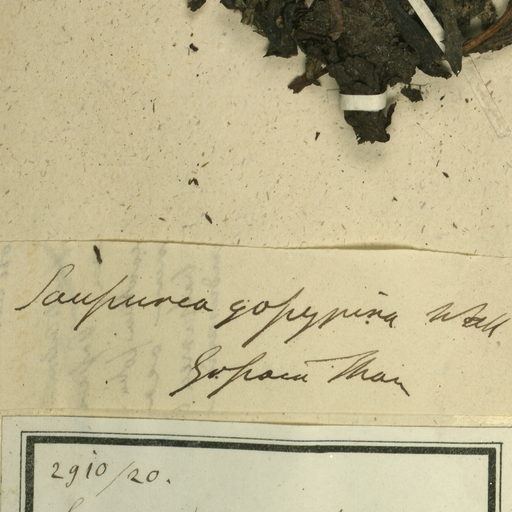 Saussurea gossypina Wall
Gossain Than
2910/20.